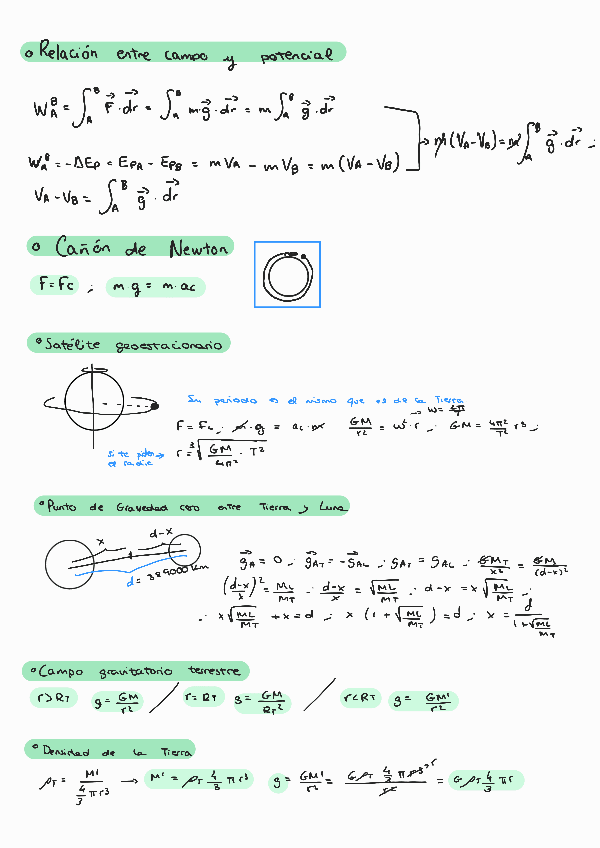 o Relación entre campo y potencial
W_A^B = ∫_A^B F⃗ · dr⃗ = ∫_A^B m g⃗ · dr⃗ = m ∫_A^B g⃗ · dr⃗
→ m(V_A - V_B) = m ∫_A^B g⃗ · dr⃗ ∴
W_A^B = -ΔE_P = E_PA - E_PB = m V_A - m V_B = m (V_A - V_B)
V_A - V_B = ∫_A^B g⃗ · dr⃗
o Cañón de Newton
F = Fc ∴ m g = m · ac
o Satélite geoestacionario
Su periodo es el mismo que es de la Tierra
→ W =
F = Fc ∴ m · g = ac · m   GM/r² = w² · r ∴ GM = 4π²/T² r³ ∴
Si te piden el radio → r = ∛(GM/4π² · T²)
o Punto de Gravedad cero entre Tierra y Luna
x   d-x
d = 384000 km
g⃗_A = 0 ∴ g⃗_AT = -g⃗_AL ∴ g_AT = g_AL ∴ GM_T/x² = GM/(d-x)²
((d-x)/x)² = M_L/M_T ∴ (d-x)/x = √(M_L/M_T) ∴ d-x = x √(M_L/M_T) ∴
∴ x √(M_L/M_T) + x = d ∴ x (1 + √(M_L/M_T)) = d ∴ x = d/(1+√(M_L/M_T))
o Campo gravitatorio terrestre
r > R_T   g = GM/r² / r = R_T   g = GM/R_T² / r < R_T   g = GM'/r²
o Densidad de la Tierra
ρ_T = M'/(4/3 π r³) → M' = ρ_T 4/3 π r³   g = GM'/r² = G ρ_T 4/3 π r³/r² = G ρ_T 4/3 π r